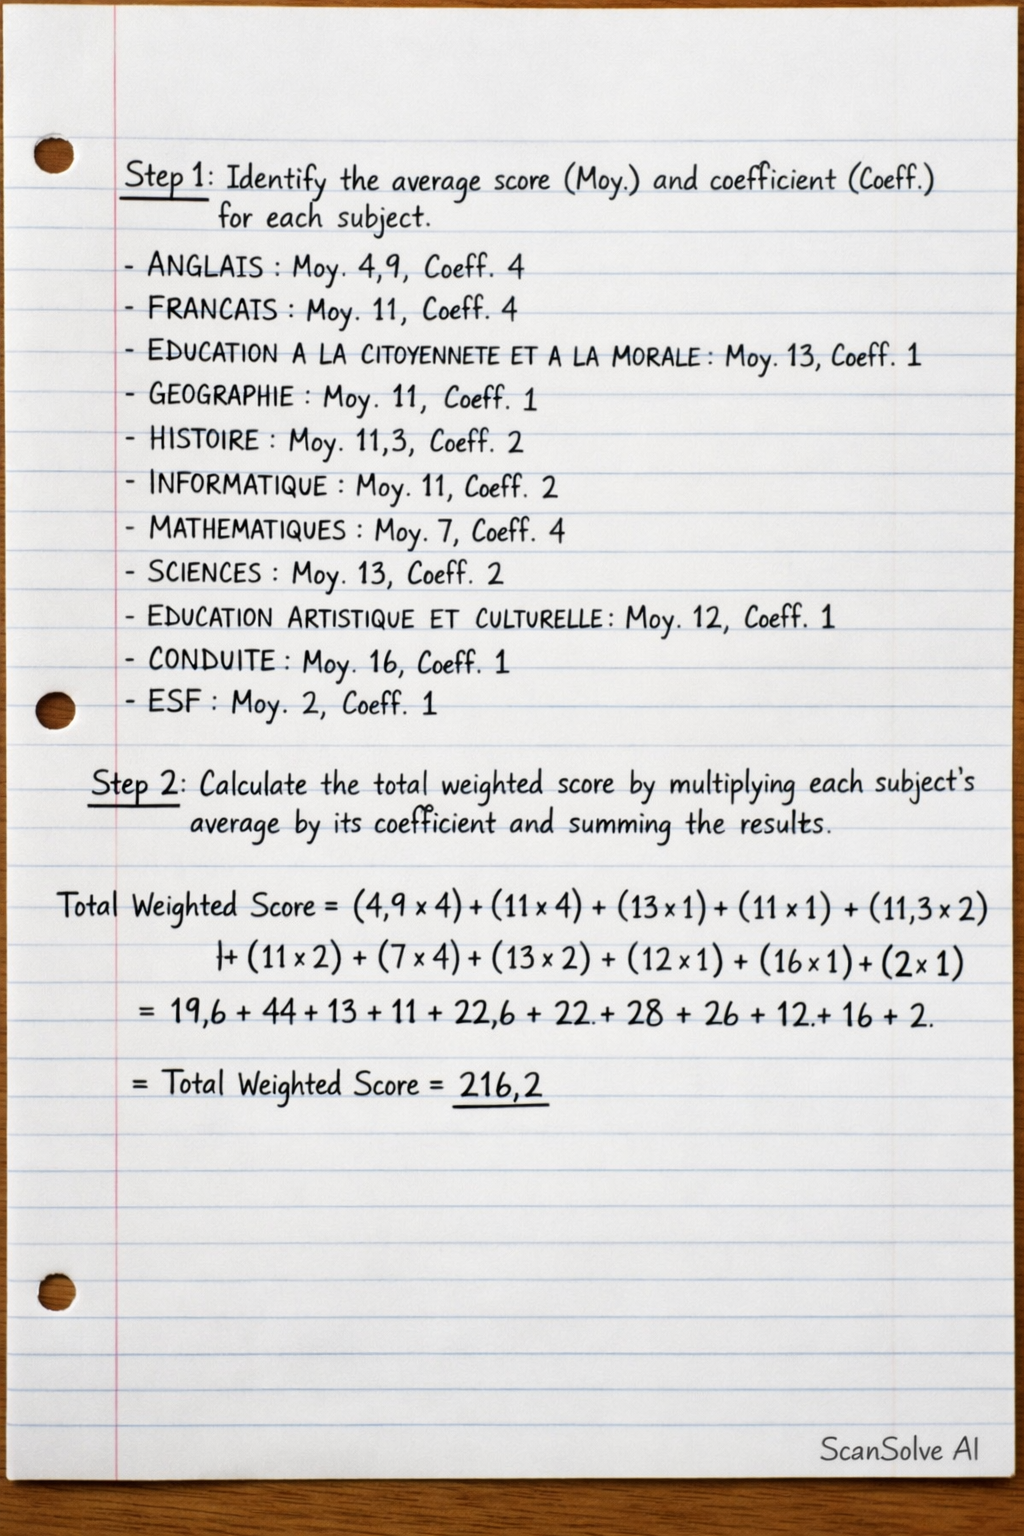 Step 1: Identify the average score (Moy.) and coefficient (Coeff.)
for each subject.
- ANGLAIS : Moy. 4,9, Coeff. 4
- FRANCAIS : Moy. 11, Coeff. 4
- EDUCATION A LA CITOYENNETE ET A LA MORALE : Moy. 13, Coeff. 1
- GEOGRAPHIE : Moy. 11, Coeff. 1
- HISTOIRE : Moy. 11,3, Coeff. 2
- INFORMATIQUE : Moy. 11, Coeff. 2
- MATHEMATIQUES : Moy. 7, Coeff. 4
- SCIENCES : Moy. 13, Coeff. 2
- EDUCATION ARTISTIQUE ET CULTURELLE : Moy. 12, Coeff. 1
- CONDUITE : Moy. 16, Coeff. 1
- ESF : Moy. 2, Coeff. 1
Step 2: Calculate the total weighted score by multiplying each subject's
average by its coefficient and summing the results.
Total Weighted Score = (4,9 × 4) + (11 × 4) + (13 × 1) + (11 × 1) + (11,3 × 2)
|+ (11 × 2) + (7 × 4) + (13 × 2) + (12 × 1) + (16 × 1) + (2 × 1)
= 19,6 + 44 + 13 + 11 + 22,6 + 22.+ 28 + 26 + 12.+ 16 + 2.
= Total Weighted Score = 216,2
ScanSolve AI